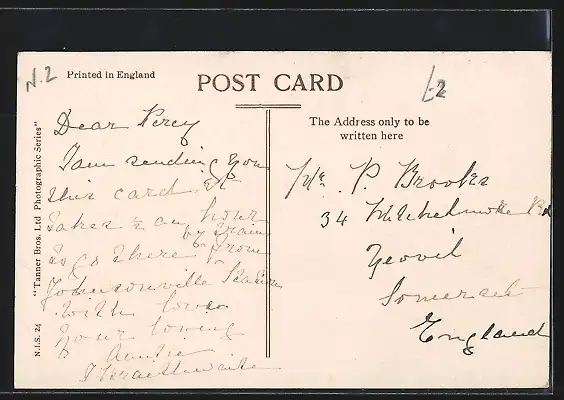 N.2
Printed in England
POST CARD
L2
The Address only to be
written here
"Tanner Bros. Ltd Photographic Series"
N.I.S. 24
Dear Percy
I am sending you
this card. It
takes ½ an hour
by train
to go there from
Johnsonville Station
with love
Your loving
Auntie
J Braithwaite
Mr. P. Brooks
34 Mitchelmore Rd
Yeovil
Somerset
England